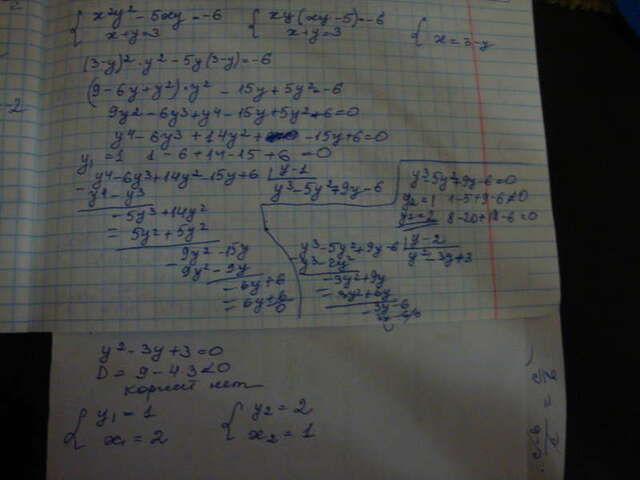 { x²y² - 5xy = -6 { xy(xy-5) = -6 {
x+y=3 x+y=3 x=3-y
(3-y)²·y² - 5y(3-y) = -6
(9-6y+y²)·y² - 15y + 5y² = -6
9y² - 6y³ + y⁴ - 15y + 5y² + 6 = 0
y⁴ - 6y³ + 14y² - 15y + 6 = 0
y₁ = 1 1 - 6 + 14 - 15 + 6 = 0
y⁴ - 6y³ + 14y² - 15y + 6 | y-1
y⁴ - y³ y³ - 5y² + 9y - 6
- 5y³ + 14y²
= 5y² + 5y²
9y² - 15y
9y² - 9y
- 6y + 6
= 6y + 6
0
y³ - 5y² + 9y - 6 = 0
y₂ = 1 1 - 5 + 9 - 6 ≠ 0
y₂ = 2 8 - 20 + 18 - 6 = 0
y³ - 5y² + 9y - 6 | y-2
y³ - 2y² y² - 3y + 3
- 3y² + 9y
= 3y² + 6y
3y - 6
y² - 3y + 3 = 0
D = 9 - 4·3 < 0
корней нет
{ y₁ = 1 { y₂ = 2
x₁ = 2 x₂ = 1